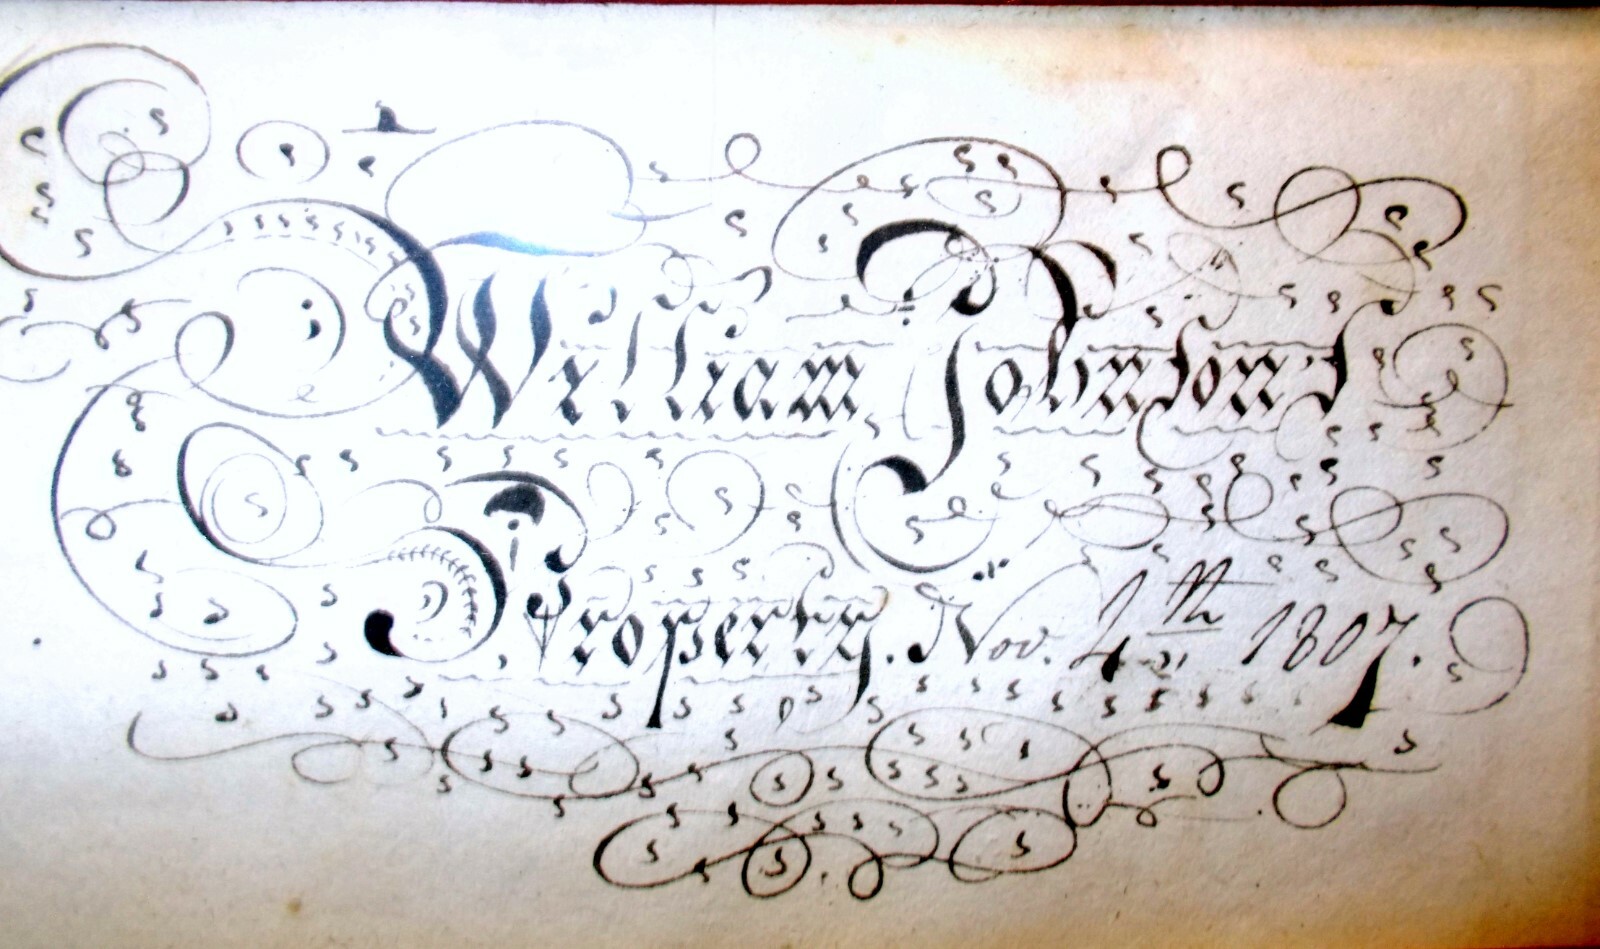 William Johnson's
Property. Nov. 4th 1807.